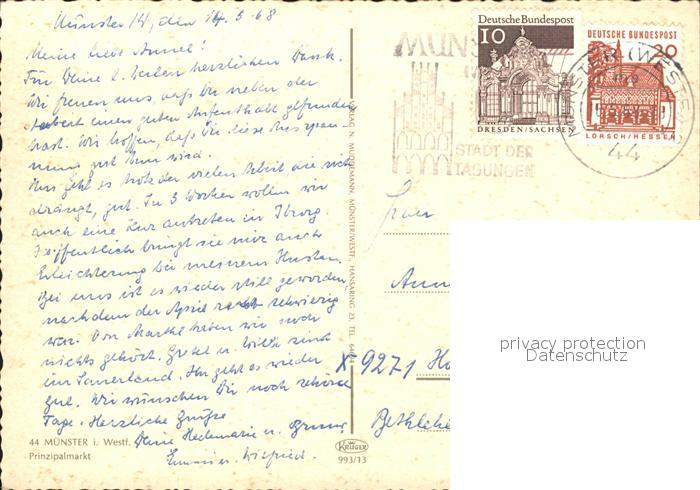 Münster /W, den 14. 5. 68
Meine liebe Annel!
Für Deine l. Zeilen herzlichen Dank.
Wir freuen uns, daß Du neben der
Arbeit einen guten Aufenthalt gefunden
hast. Wir hoffen, daß Dir diese Ausspan-
nung gut tun wird.
Uns geht es trotz der vielen Arbeit die sich
drängt, gut. In 3 Wochen wollen wir
auch eine Kur antreten in Iburg.
Hoffentlich bringt sie mir auch
Erleichterung bei meinem Husten.
Bei uns ist es wieder still geworden,
nachdem der April sehr schwierig
war. Von haben wir noch
nichts gehört. Gretel u. Willi sind
im Sauerland. Ihr geht es wieder
gut. Wir wünschen Dir noch schöne
Tage. Herzliche Grüße
Deine Hedemarie u.
Wilfried.
44 MÜNSTER i. Westf.
Prinzipalmarkt
VERLAG N. MÜNSTER/WESTF., HANSARING 23, TEL.
KRÜGER
993/13
MÜNS
STADT DER
TAGUNGEN
Deutsche Bundespost
10
DRESDEN/SACHSEN
DEUTSCHE BUNDESPOST
20
LORSCH/HESSEN
MÜNSTER (WESTF
44
Frau
X 9271
Bethlehe
privacy protection
Datenschutz